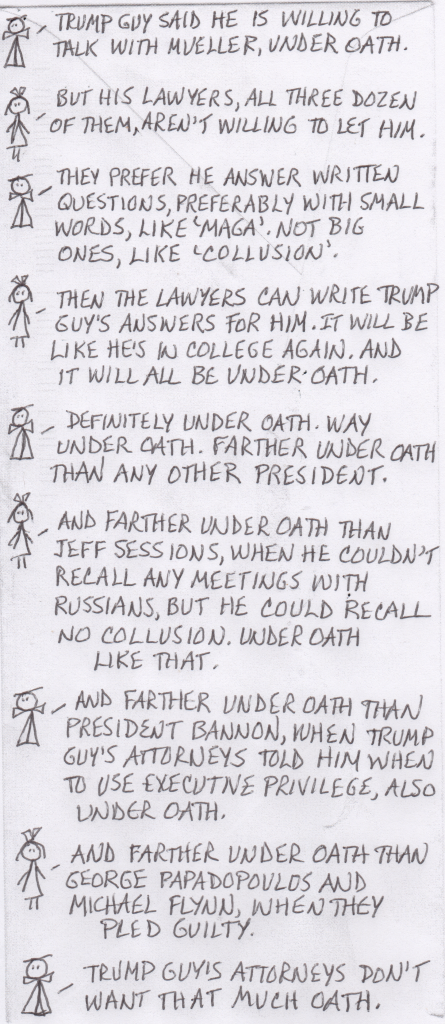 TRUMP GUY SAID HE IS WILLING TO
TALK WITH MUELLER, UNDER OATH.
BUT HIS LAWYERS, ALL THREE DOZEN
OF THEM, AREN'T WILLING TO LET HIM.
THEY PREFER HE ANSWER WRITTEN
QUESTIONS, PREFERABLY WITH SMALL
WORDS, LIKE 'MAGA'. NOT BIG
ONES, LIKE 'COLLUSION'.
THEN THE LAWYERS CAN WRITE TRUMP
GUY'S ANSWERS FOR HIM. IT WILL BE
LIKE HE'S IN COLLEGE AGAIN. AND
IT WILL ALL BE UNDER OATH.
DEFINITELY UNDER OATH. WAY
UNDER OATH. FARTHER UNDER OATH
THAN ANY OTHER PRESIDENT.
AND FARTHER UNDER OATH THAN
JEFF SESSIONS, WHEN HE COULDN'T
RECALL ANY MEETINGS WITH
RUSSIANS, BUT HE COULD RECALL
NO COLLUSION. UNDER OATH
LIKE THAT.
AND FARTHER UNDER OATH THAN
PRESIDENT BANNON, WHEN TRUMP
GUY'S ATTORNEYS TOLD HIM WHEN
TO USE EXECUTIVE PRIVILEGE, ALSO
UNDER OATH.
AND FARTHER UNDER OATH THAN
GEORGE PAPADOPOULOS AND
MICHAEL FLYNN, WHEN THEY
PLED GUILTY.
TRUMP GUY'S ATTORNEYS DON'T
WANT THAT MUCH OATH.